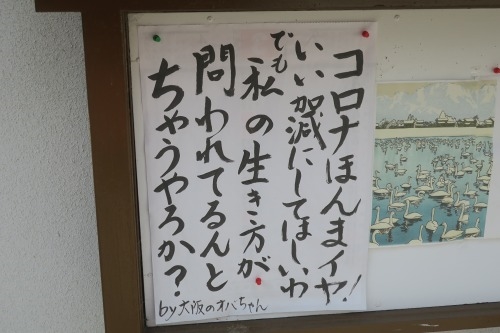 コロナほんまイヤ!
いい加減にしてほしいわ
でも私の生き方が
問われてるんと
ちゃうやろか?
by大阪のオバちゃん